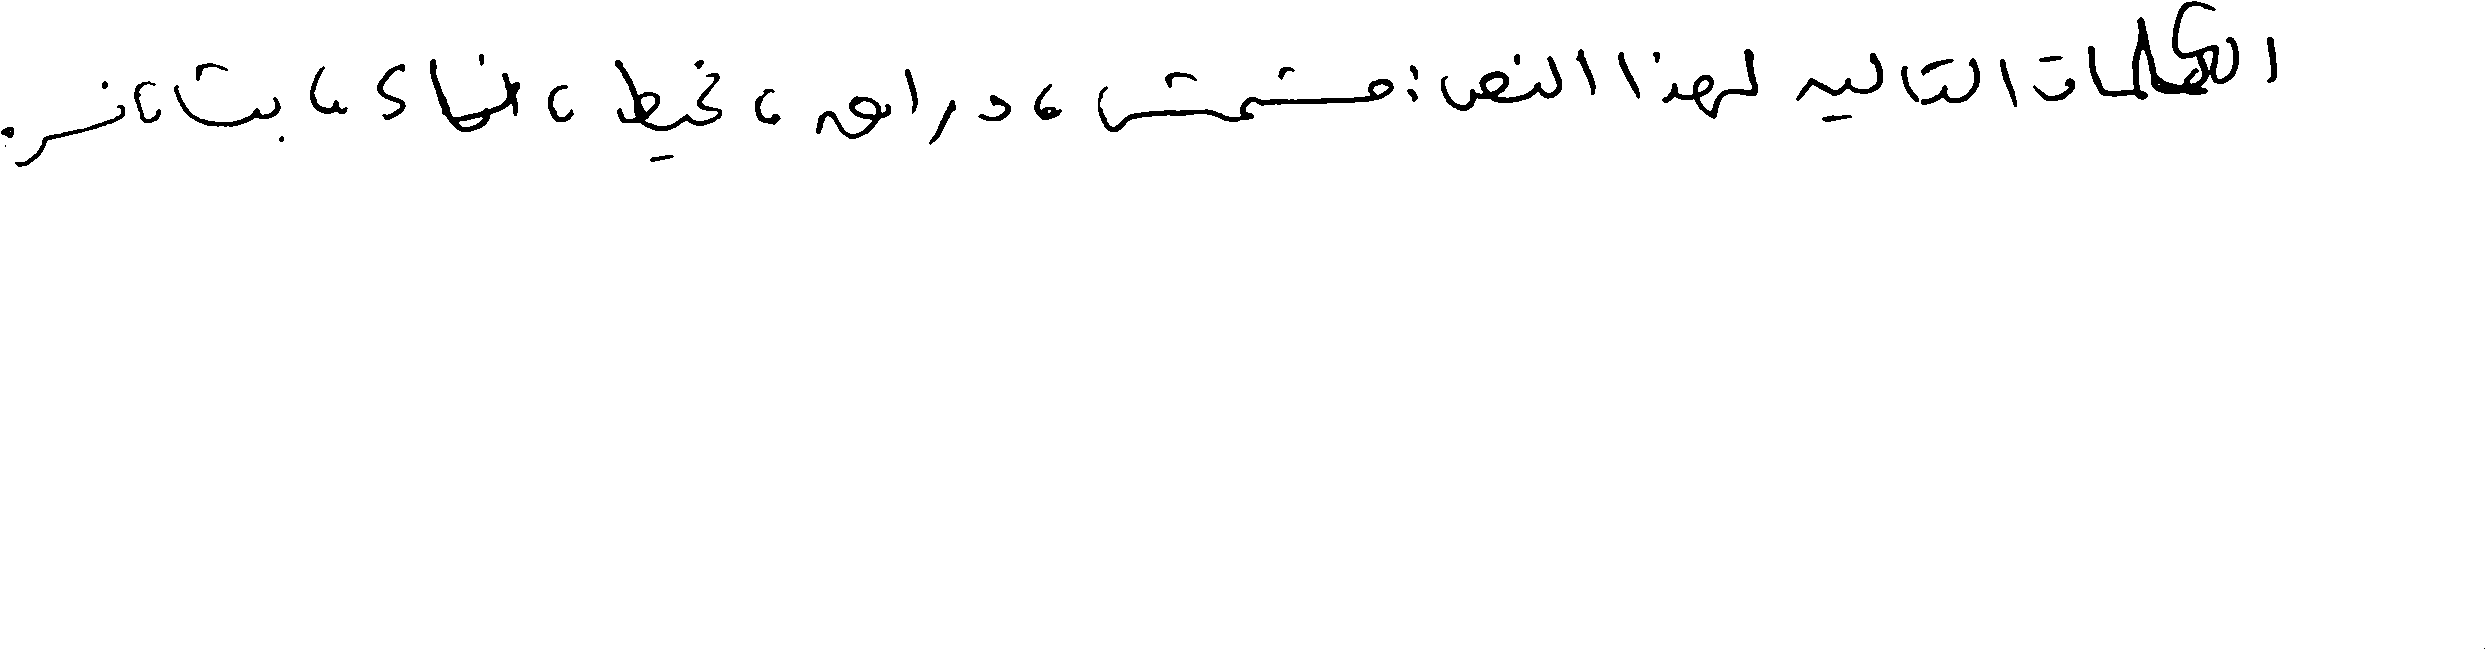 الكلمات التاليه لهذا النص: مشمش، دراهم، خيط، ، بت، نسر.